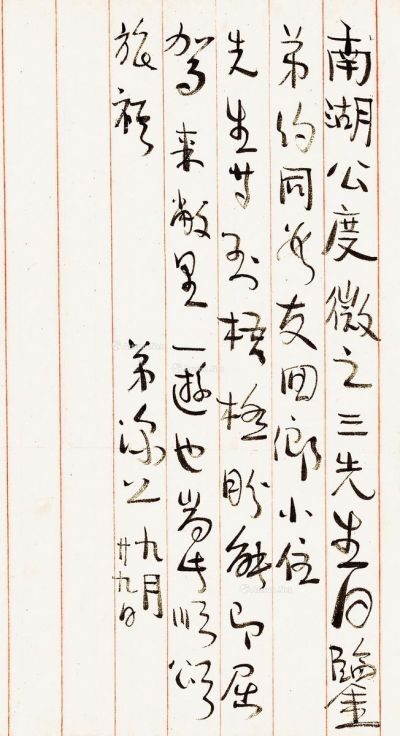 南湖公度微之三先生同鑒
弟約同友回鄉小住
先生等到梧盼能即屈
駕來敝里一遊也耑此順頌
旅祺
弟
九月
廿九日